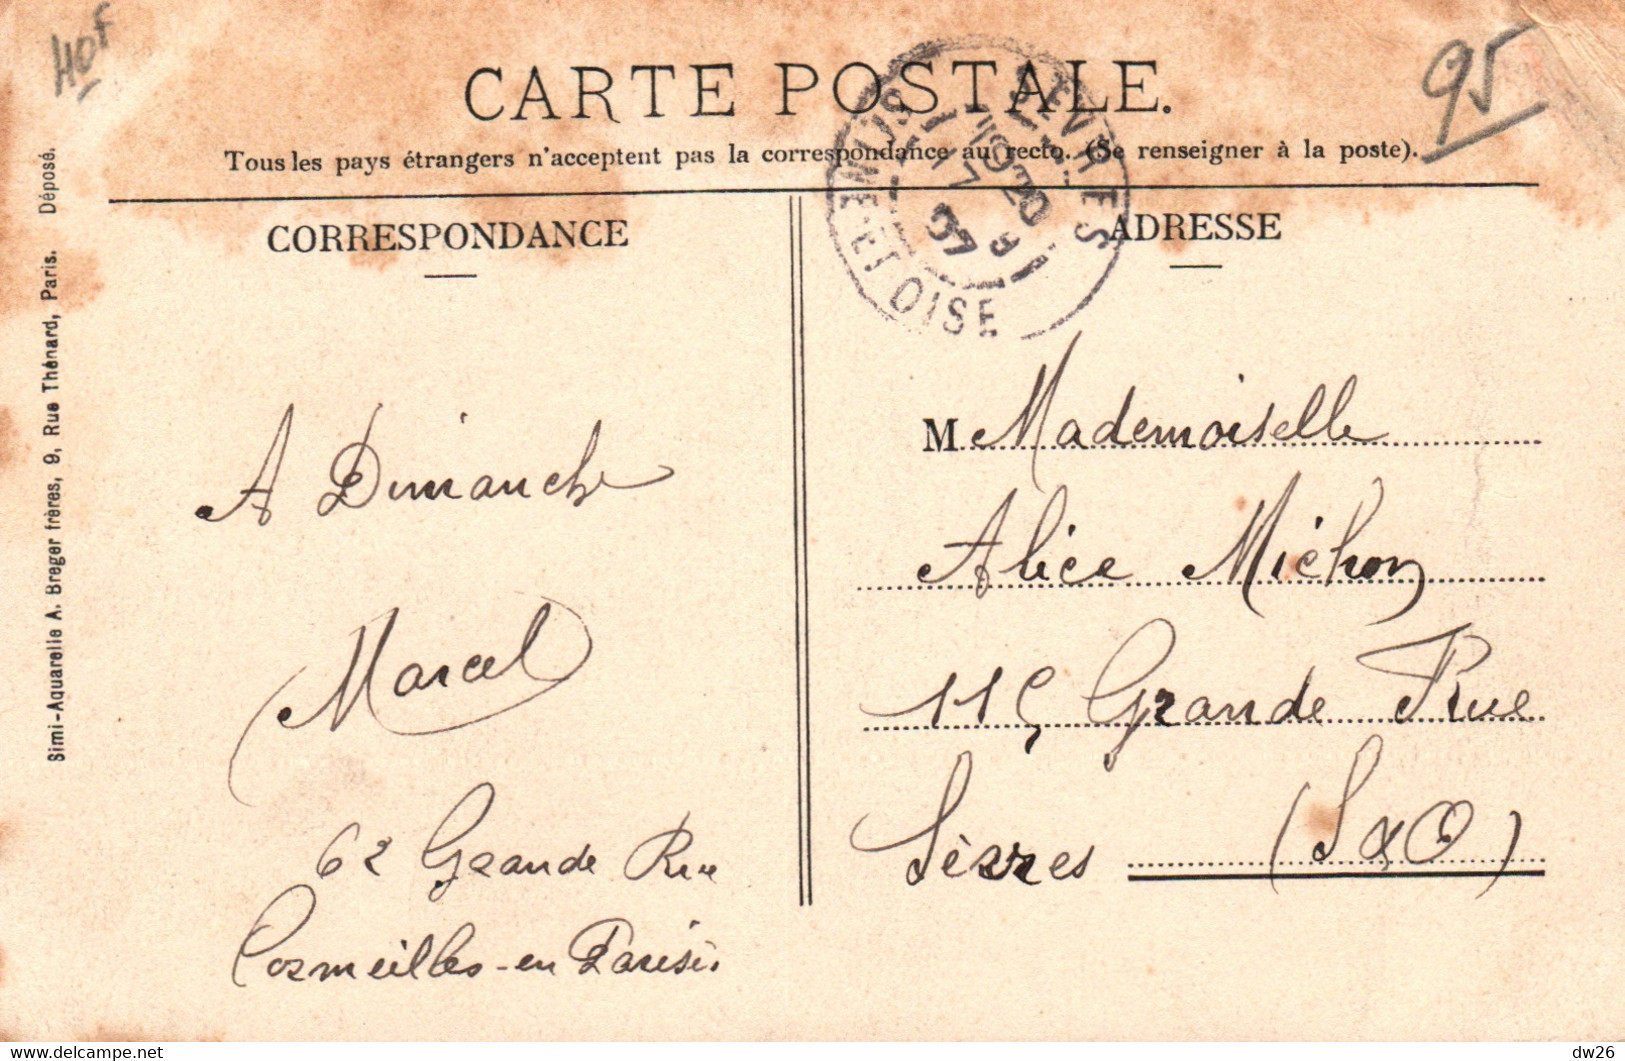 40F
95
CARTE POSTALE.
Tous les pays étrangers n'acceptent pas la correspondance au recto. (Se renseigner à la poste).
Simi-Aquarelle A. Breger frères, 9, Rue Thénard, Paris. Déposé.
CORRESPONDANCE
A Dimanche
Marcel
62 Grande Rue
Cormeilles-en Parisis.
SEVRES
SEINE-ET-OISE
ADRESSE
M Mademoiselle
Alice Michon
115 Grande Rue
Sèvres (S & O)
www.delcampe.net
dw26